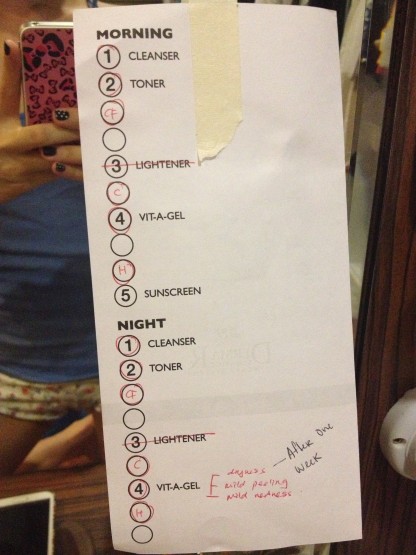 MORNING
1 CLEANSER
2 TONER
CF
3 LIGHTENER
C
4 VIT-A-GEL
H
5 SUNSCREEN
NIGHT
1 CLEANSER
2 TONER
CF
3 LIGHTENER
C
4 VIT-A-GEL
dryness
mild peeling
mild redness
— After one
week
H